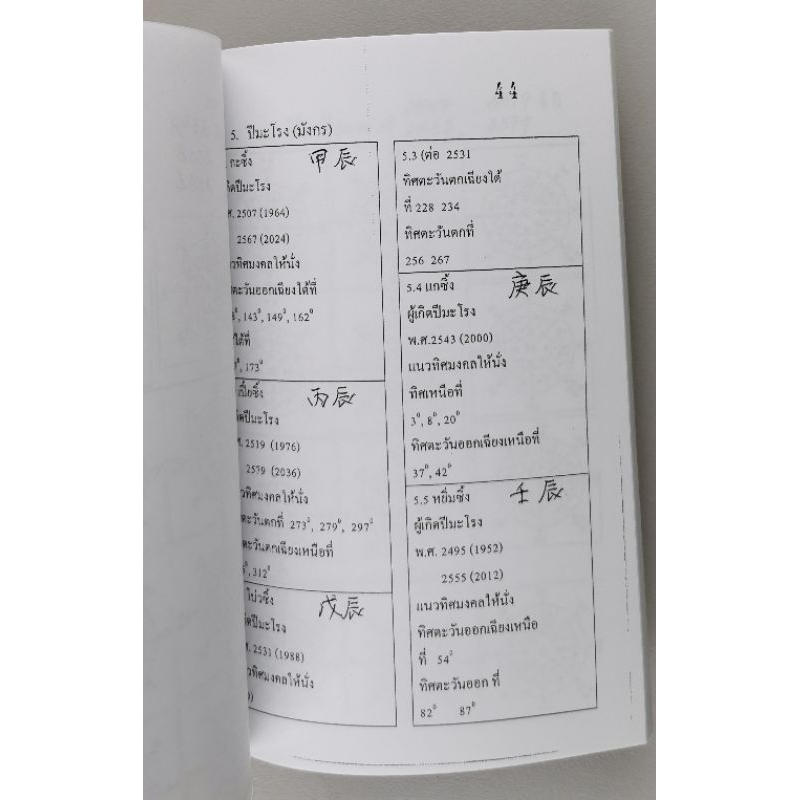 44
5. ปีมะโรง (มังกร)
กะซิ้ง 甲辰
กิดปีมะโรง
ศ. 2507 (1964)
2567 (2024)
วทิศมงคลให้นั่ง
ตะวันออกเฉียงใต้ที่
143⁰, 149⁰, 162⁰
ใต้ที่
173⁰
เปี่ยซิ้ง 丙辰
กิดปีมะโรง
ศ. 2519 (1976)
2579 (2036)
วทิศมงคลให้นั่ง
ตะวันตกที่ 273⁰, 279⁰, 297⁰
ตะวันตกเฉียงเหนือที่
312⁰
โบ่วซิ้ง 戊辰
กิดปีมะโรง
ศ. 2531 (1988)
วทิศมงคลให้นั่ง
5.3 (ต่อ 2531
ทิศตะวันตกเฉียงใต้
ที่ 228 234
ทิศตะวันตกที่
256 267
5.4 แกซิ้ง 庚辰
ผู้เกิดปีมะโรง
พ.ศ.2543 (2000)
แนวทิศมงคลให้นั่ง
ทิศเหนือที่
3⁰, 8⁰, 20⁰
ทิศตะวันออกเฉียงเหนือที่
37⁰, 42⁰
5.5 หยิ่มซิ้ง 壬辰
ผู้เกิดปีมะโรง
พ.ศ. 2495 (1952)
2555 (2012)
แนวทิศมงคลให้นั่ง
ทิศตะวันออกเฉียงเหนือ
ที่ 54⁰
ทิศตะวันออก ที่
82⁰ 87⁰